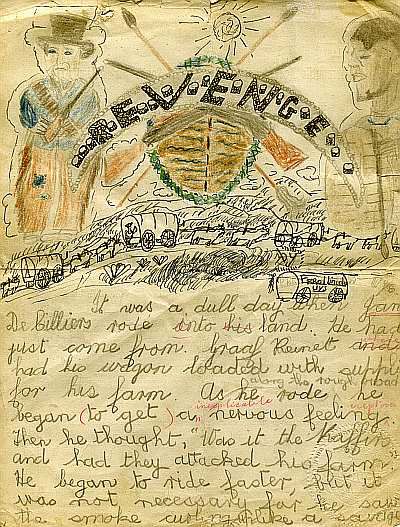 REVENGE
It was a dull day when Jan
De Cilliers rode onto his land. He had
just come from Graaf Reinet and
had his wagon loaded with supply
for his farm. As he rode, he
along the rough road
began (to get) a nervous feeling.
inexplicable
Then he thought, "Was it the Kaffirs
and had they attacked his farm.
He began to ride faster, but it
was not necessary for he saw
the smoke curling like a